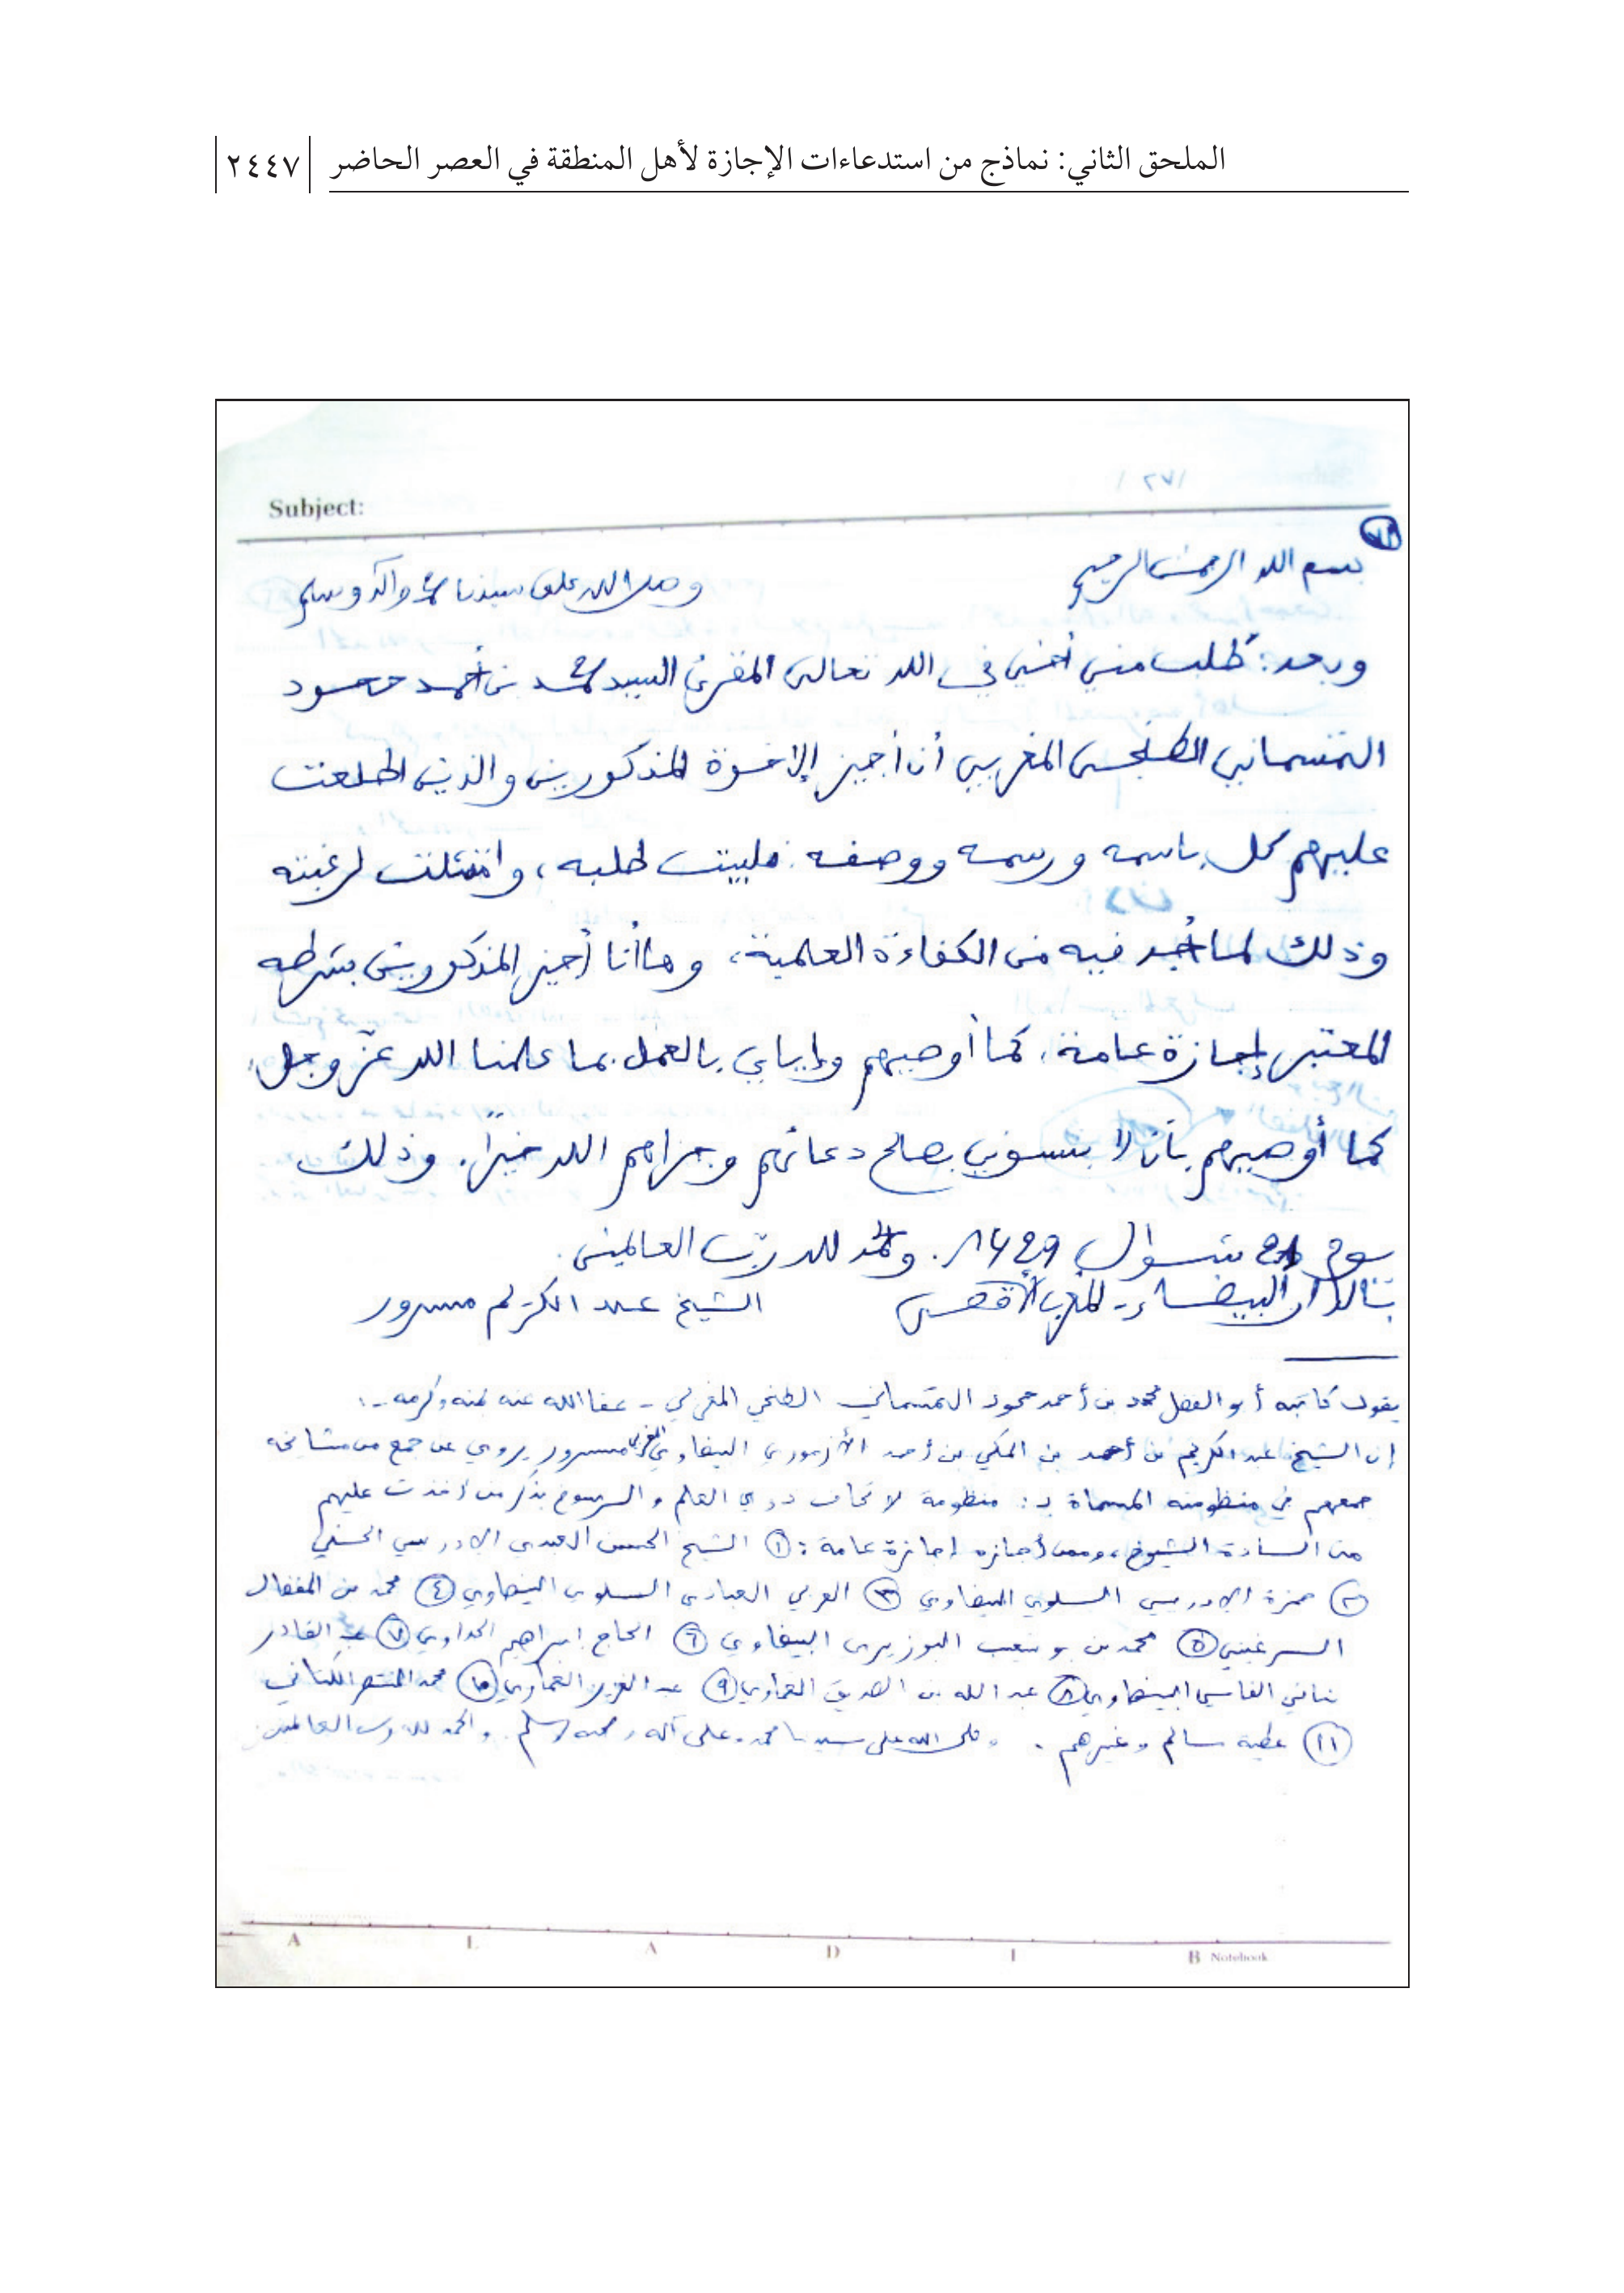 الملحق الثاني: نماذج من استدعاءات الإجازة لأهل المنطقة في العصر الحاضر ٢٤٤٧
Subject:
بسم الله الرحمن الرحيم وصلى الله على سيدنا محمد وآله وسلم
وبعد: طلب مني أخي في الله تعالى المقرئ السيد محمد بن أحمد حمود
التمسماني الطنجي المغربي أن أجيز الإخوة المذكورين والذين اطلعت
عليهم كل باسمه ورسمه ووصفه. فلبيت طلبه، وامتثلت لرغبته
وذلك لما أجد فيه من الكفاءة العلمية، وها أنا أجيز المذكورين بشرطه
المعتبر إجازة عامة، كما أوصيهم وإياي بالعمل بما علمنا الله عز وجل،
كما أوصيهم بأن لا ينسوني بصالح دعائهم وجزاهم الله خيرًا. وذلك
شوال 1429. والحمد لله رب العالمين.
بالدار البيضاء - المغرب الأقصى الشيخ عبد الكريم مسرور
يقول كاتبه أبو الفضل محمد بن أحمد حمود التمسماني الطنجي المغربي - عفا الله عنه بمنه وكرمه -:
إن الشيخ عبد الكريم بن أحمد بن المكي بن أحمد الأزموري البيضاوي المغربي مسرور يروي عن جمع من مشائخه
جمعهم في منظومته المسماة بـ: منظومة لإتحاف ذوي العلم والرسوخ بذكر من أخذت عليهم
من السادة الشيوخ، وممن أجازه إجازة عامة: ① الشيخ الحسن العبدي الإدريسي الحسني
② حمزة الإدريسي السلوي البيضاوي ③ العربي العبادي السلوي البيضاوي ④ محمد بن المفضال
السرغيني ⑤ محمد بن بوشعيب البوزيري البيضاوي ⑥ الحاج إبراهيم الحداوي ⑦ عبد القادر
بناني الفاسي البيضاوي ⑧ عبد الله بن الصديق الغماري ⑨ عبد العزيز الغماري ⑩ محمد المنتصر الكتاني
⑪ عطية سالم وغيرهم. وصلى الله على سيدنا محمد وعلى آله وصحبه وسلم. والحمد لله رب العالمين.
A L A D I B Notebook